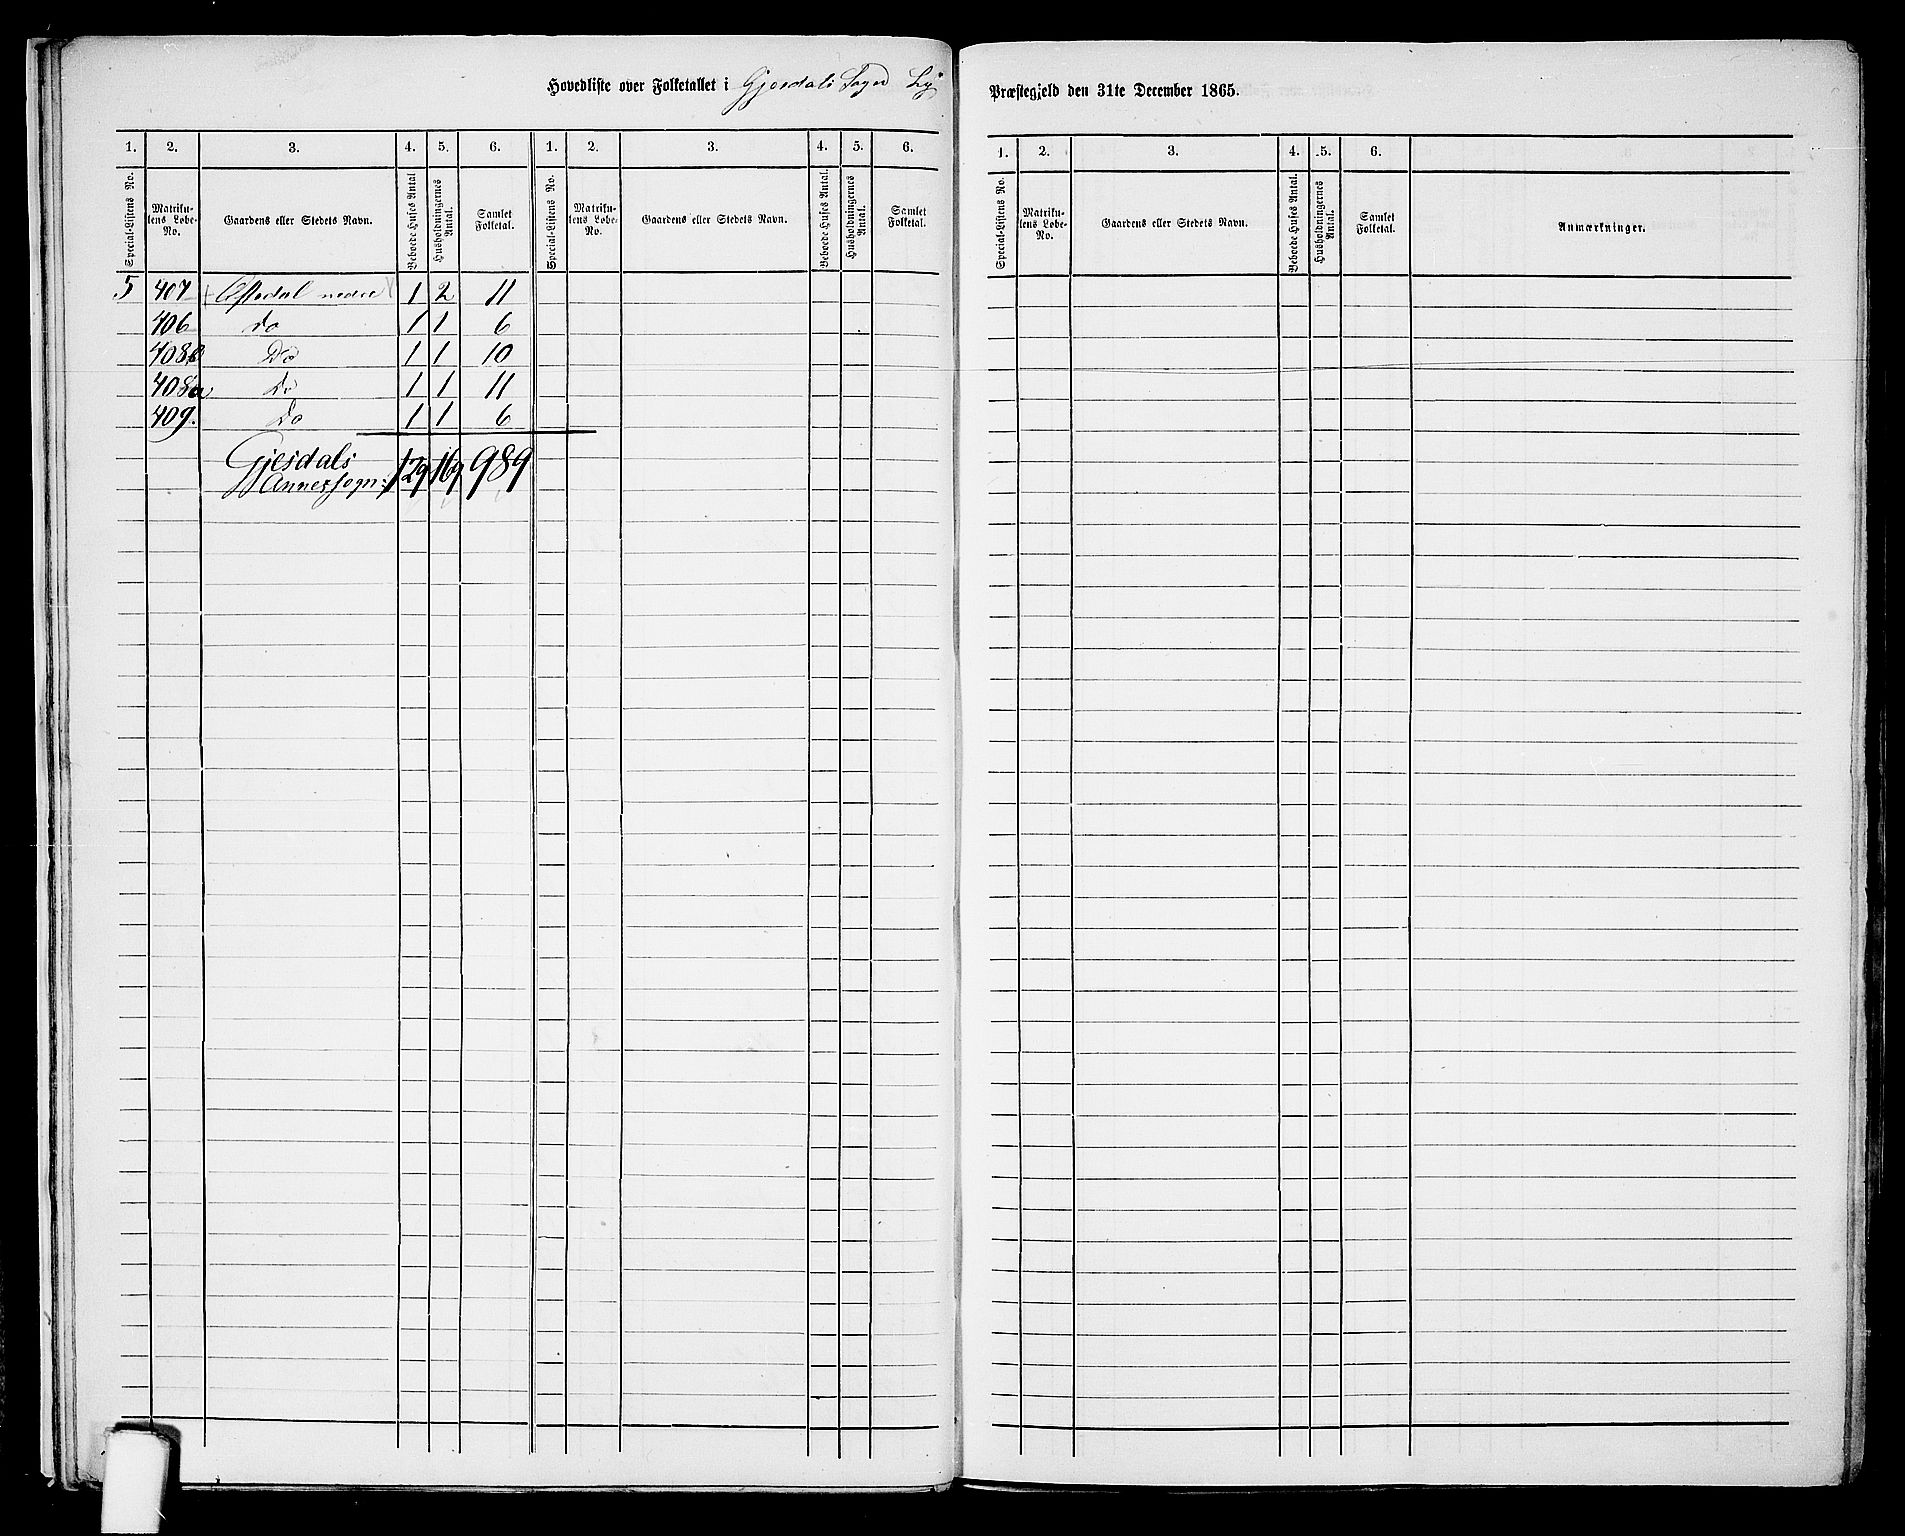 Hovedliste over Folketallet i Gjesdals Sogn Lye Præstegjeld den 31te December 1865.
1. 2. 3. 4. 5. 6. 1. 2. 3. 4. 5. 6. 1. 2. 3. 4. 5. 6.
Special-Listens No. Matrikulens Løbe-No. Gaardens eller Stedets Navn. Beboede Huses Antal Husholdningernes Antal. Samlet Folketal. Special-Listens No. Matrikulens Løbe-No. Gaardens eller Stedets Navn. Beboede Huses Antal. Husholdningernes Antal. Samlet Folketal. Special-Listens No. Matrikulens Løbe-No. Gaardens eller Stedets Navn. Beboede Huses Antal. Husholdningernes Antal. Samlet Folketal. Anmærkninger.
5 407 nedre 1 2 11
406 do 1 1 6
408b Do 1 1 10
408a Do 1 1 11
409. Do 1 1 6
Gjesdals 129 169 989
Annexsogn: